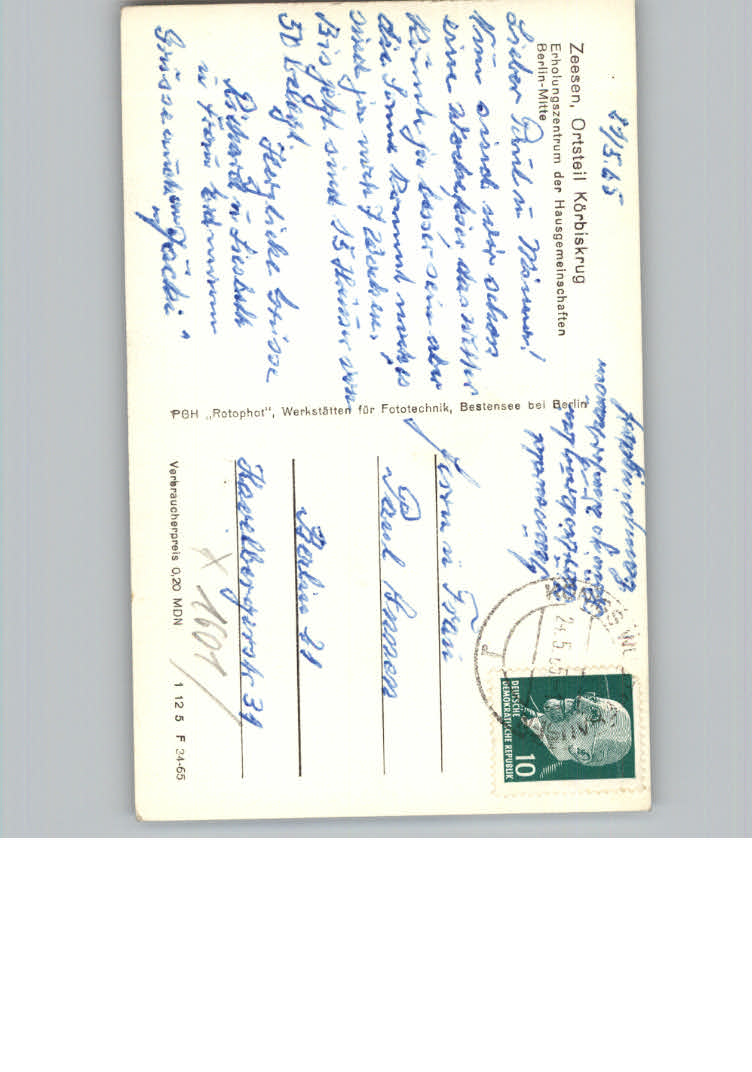 21/5.65
Zeesen, Ortsteil Körbiskrug
Erholungszentrum der Hausgemeinschaften
Berlin-Mitte
Lieber Paul u
Nun sind wir schon
eine Woche hier das Wetter
könnte ja besser sein aber
die Sonne kommt noch es
sind ja noch 7 Wochen,
Bis jetzt sind 15 Häuser von
50 belegt.
Herzliche Grüsse
Richard u Liesbeth
u Frau
Grüsse auch an "Jacki"
PGH „Rotophot", Werkstätten für Fototechnik, Bestensee bei Berlin
Herrn u Frau
Paul
Berlin 21
Havelbergerstr 31
24.5.65
DEUTSCHE
DEMOKRATISCHE REPUBLIK
10
x 1601/
Verbraucherpreis 0,20 MDN
1 12 5 F 34-65